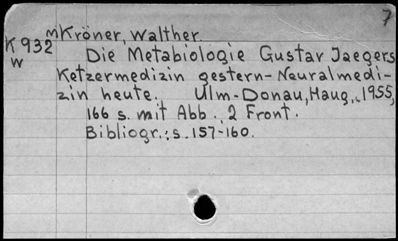 7
mKröner, Walther.
K932 Die Metabiologie Gustav Jaegers
w Ketzermedizin gestern-Neuralmedi-
zin heute. Ulm-Donau, Haug, 1955,
166 s. mit Abb., 2 Front.
Bibliogr.: s. 157-160.